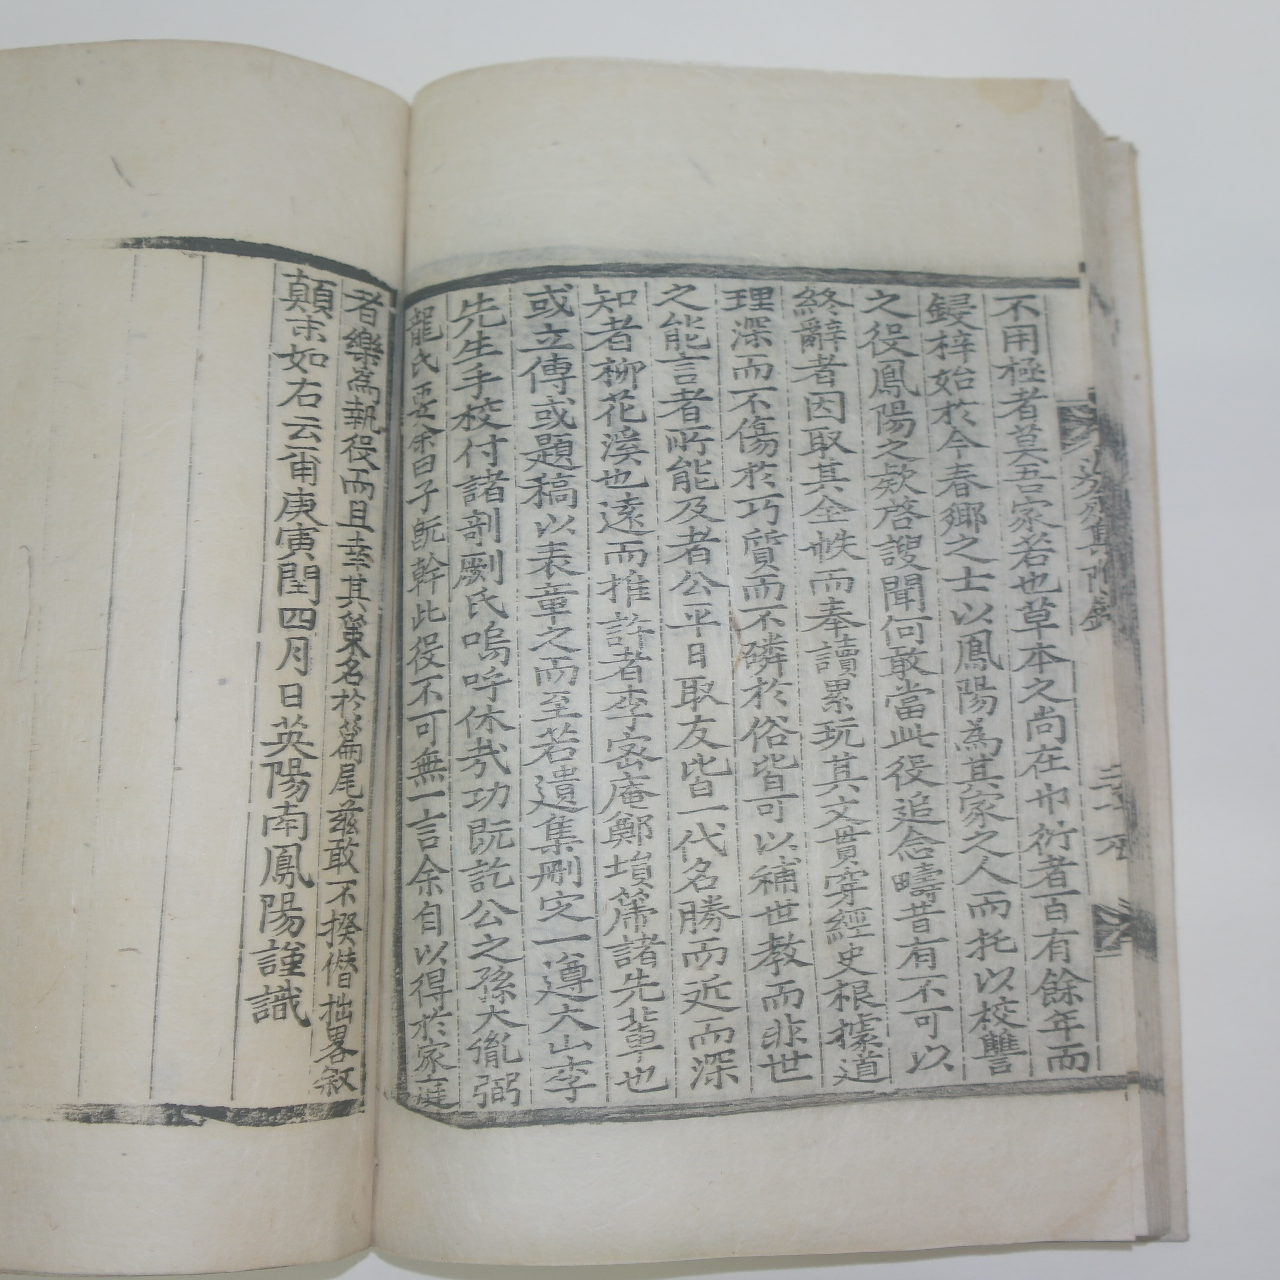 不用極者莫吾家若也草本之尚在巾衍者百有餘年而
鋟梓始於今春鄉之士以鳳陽為其家之人而托以校讐
之役鳳陽之欵啓謏聞何敢當此役追念疇昔有不可以
終辭者因取其全帙而奉讀累玩其文貫穿經史根據道
理深而不傷於巧質而不磷於俗皆可以補世教而非世
之能言者所能及者公平日取友皆一代名勝而近而深
知者柳花溪也遠而推許者李密庵鄭塤篪諸先輩也
或立傳或題稿以表章之而至若遺集刪定一遵大山李
先生手校付諸剞劂氏嗚呼休㢤功既訖公之孫大胤弼
龍氏要余曰子旣幹此役不可無一言余自以得於家庭
者樂為執役而且幸其策名於篇尾玆敢不揆僭拙畧叙
顛末如右云甭庚寅閏四月日英陽南鳳陽謹識
集附錄